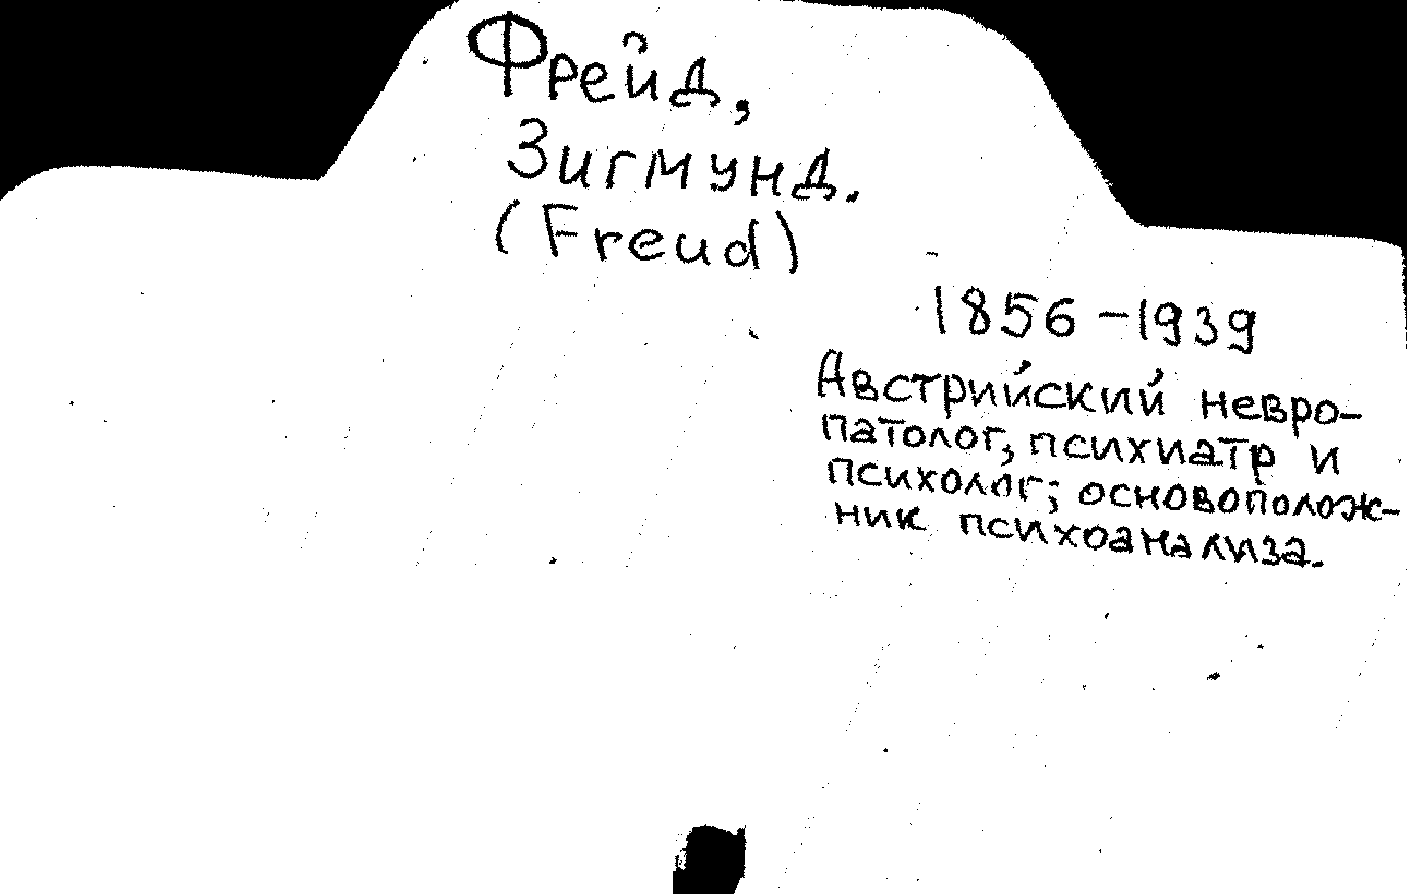 Фрейд,
Зигмунд.
(Freud)
1856-1939
Австрийский невро-
патолог, психиатр и
психолог; основополож-
ник психоанализа.